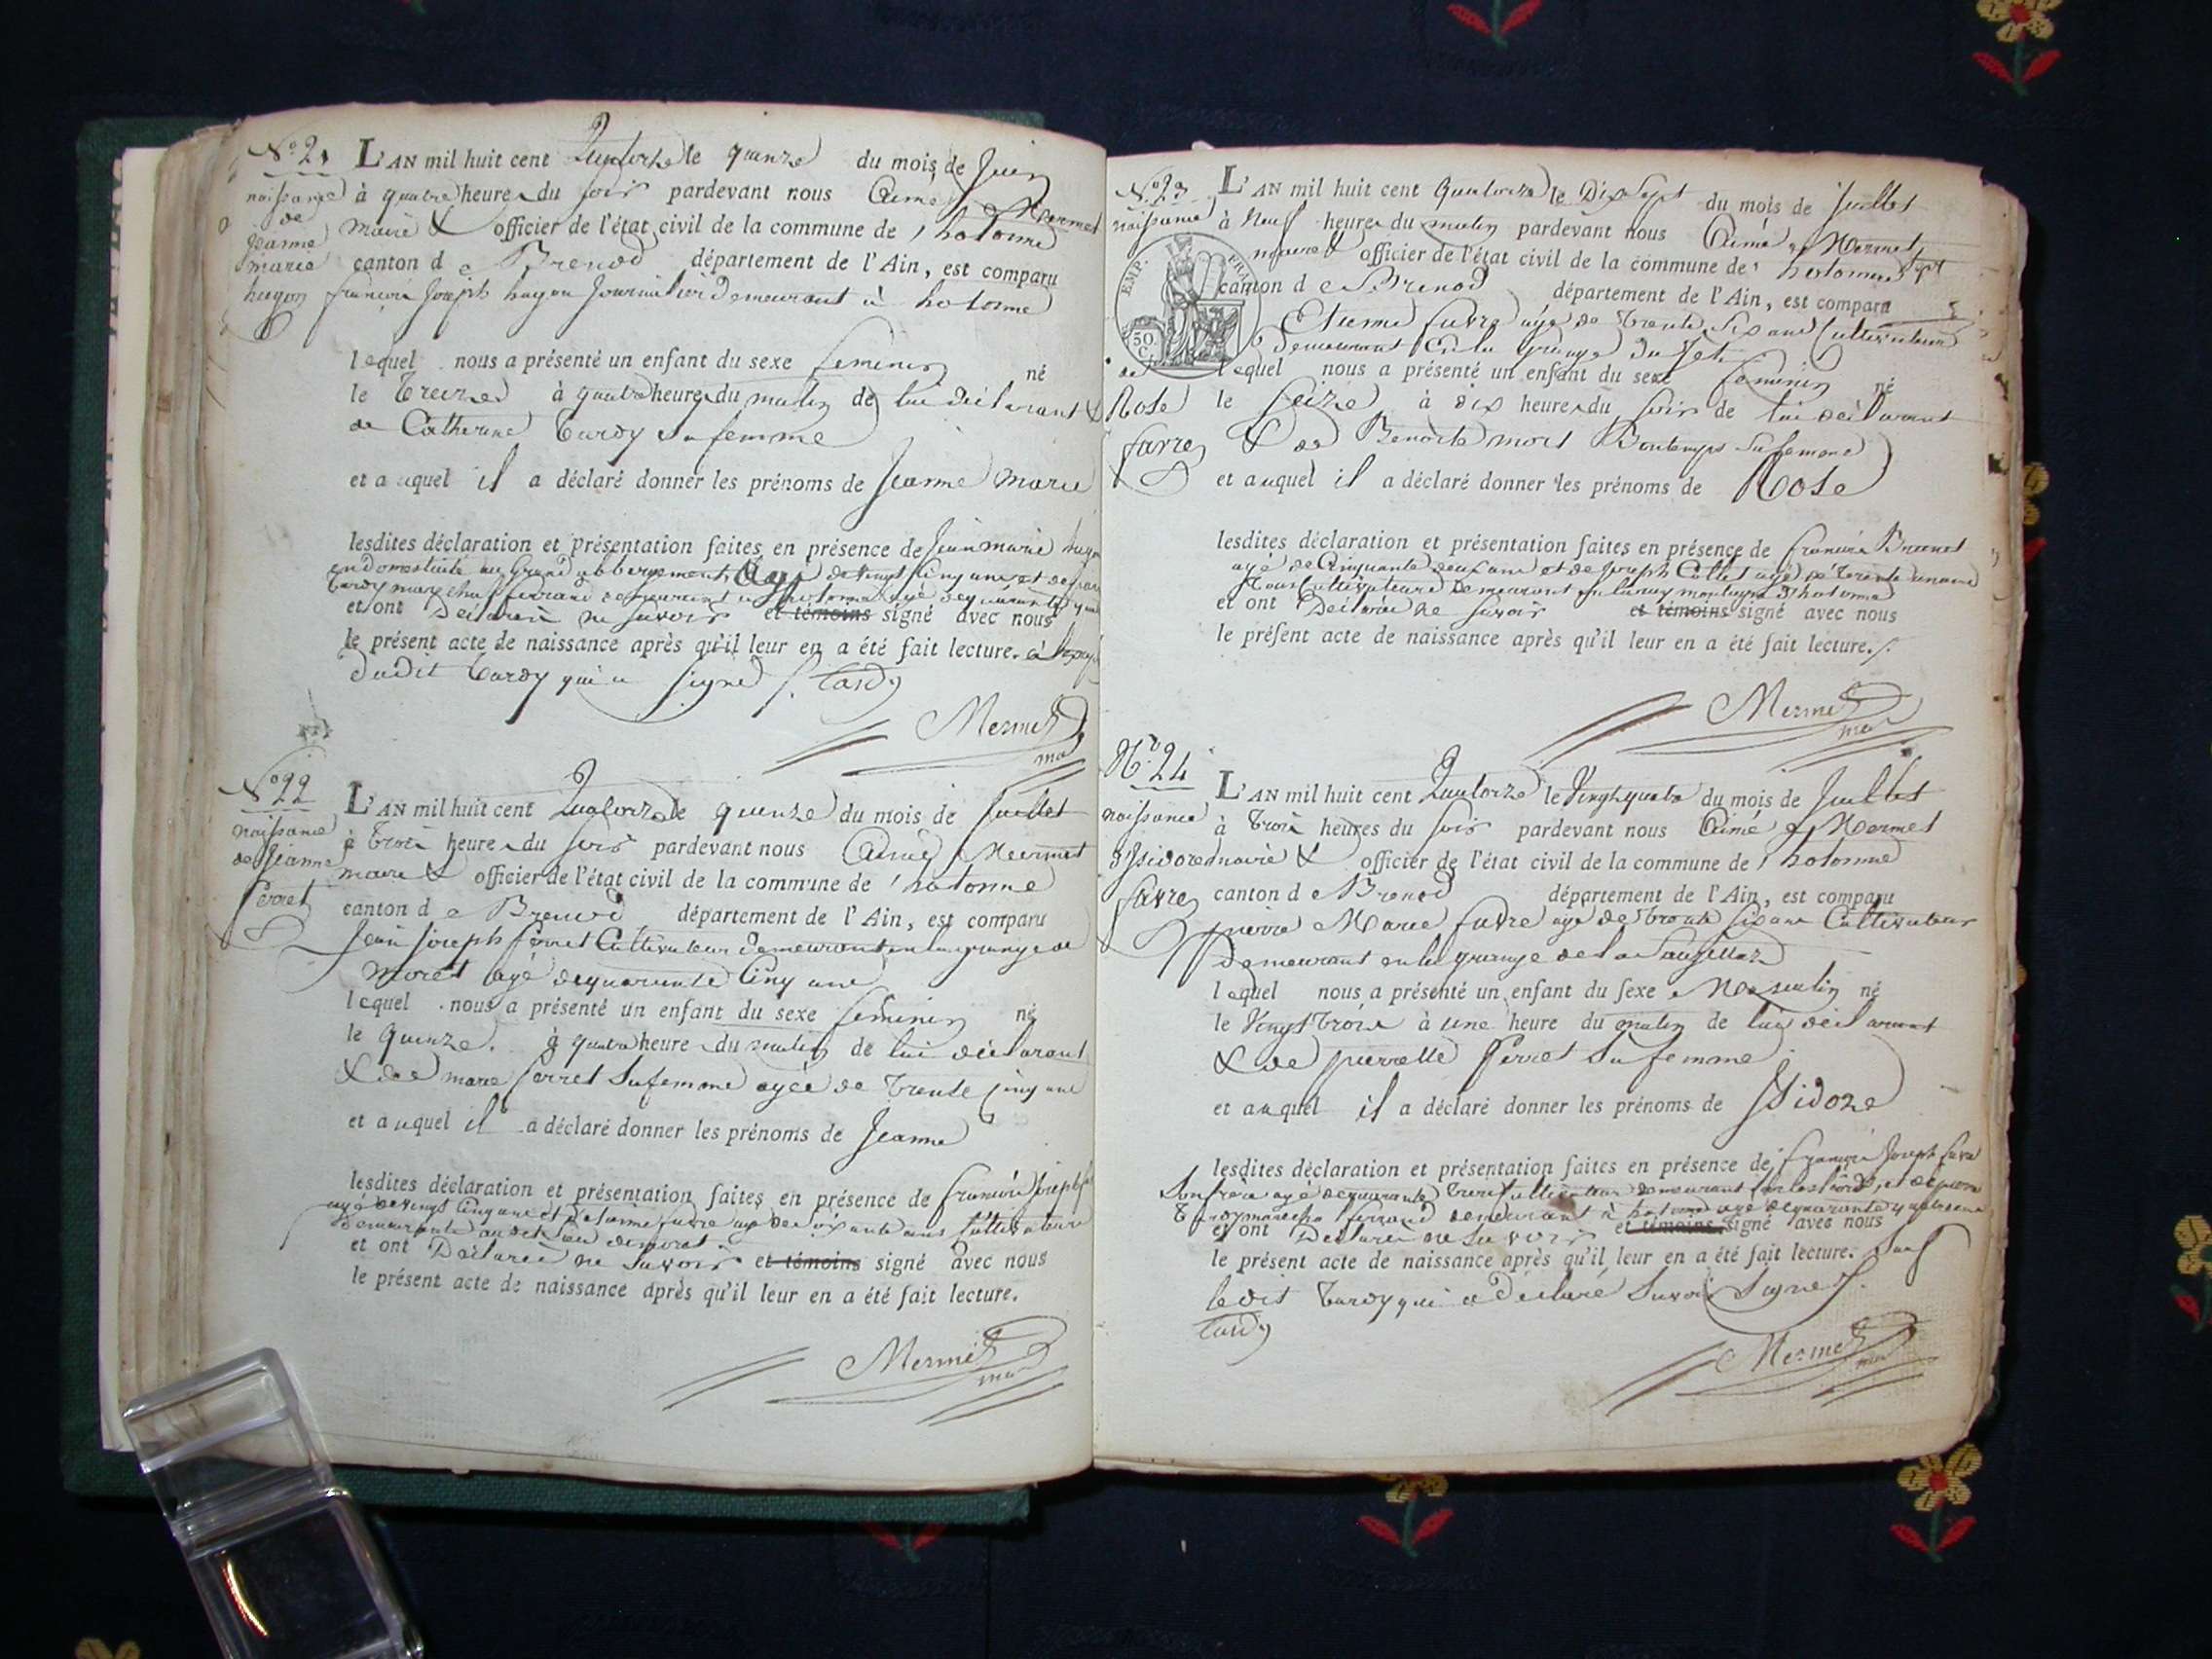 N.º 21
naissance
de
jeanne
marie
hugon
L'AN mil huit cent Quatorze le quinze du mois de Juin
à quatre heures du soir pardevant nous Aimé Mermet
maire & officier de l'état civil de la commune de hotonne
canton de Brenod département de l'Ain, est comparu
françois Joseph hugon Journalier demeurant à hotonne
lequel nous a présenté un enfant du sexe feminin né
le treize à quatre heures du matin de lui déclarant &
de Catherine tardy sa femme
et auquel il a déclaré donner les prénoms de Jeanne Marie
lesdites déclaration et présentation faites en présence de Jean marie hugon
en domesticité au grand abbergement, agé de vingt cinq ans et de
tardy marechal ferrand demeurant à hotonne agé de quarante
et ont Déclaré ne savoir et témoins signé avec nous
le présent acte de naissance après qu'il leur en a été fait lecture.
dudit tardy qui a signé tardy
Mermet
N.º 22
naissance
de Jeanne
Perret
L'AN mil huit cent Quatorze le quinze du mois de Juillet
à trois heures du soir pardevant nous Aimé Mermet
maire & officier de l'état civil de la commune de hotonne
canton de Brenod département de l'Ain, est comparu
Jean Joseph Perret Cultivateur demeurant en la grange de
moret agé de quarante cinq ans
lequel nous a présenté un enfant du sexe feminin né
le quinze à quatre heures du matin de lui déclarant
& de marie perret sa femme agée de trente cinq ans
et auquel il a déclaré donner les prénoms de Jeanne
lesdites déclaration et présentation faites en présence de françois Joseph
agé de vingt cinq ans et favre agé de ans Cultivateurs
demeurants audit lieu de moret
et ont Déclaré ne savoir et témoins signé avec nous
le présent acte de naissance après qu'il leur en a été fait lecture.
Mermet
N.º 23
naissance
EMP. FRA
50. C.
de
Rose
favre
L'AN mil huit cent Quatorze le Dix Sept du mois de Juillet
à Neuf heures du matin pardevant nous Aimé Mermet
maire & officier de l'état civil de la commune de hotonne
canton de Brenod département de l'Ain, est comparu
Etienne favre agé de trente Six ans Cultivateur
demeurant en la grange du Jet
lequel nous a présenté un enfant du sexe feminin né
le Seize à dix heures du soir de lui déclarant
& de Benoite mort Bontemps sa femme
et auquel il a déclaré donner les prénoms de Rose
lesdites déclaration et présentation faites en présence de françois Brunet
agé de Cinquante deux ans et de joseph Collet agé de trente un ans
tous Cultivateurs demeurant montagne d'hotonne
et ont Déclaré ne savoir et témoins signé avec nous
le présent acte de naissance après qu'il leur en a été fait lecture.
Mermet
N.º 24
naissance
d'Isidore
favre
L'AN mil huit cent Quatorze le Vingt quatre du mois de Juillet
à trois heures du soir pardevant nous Aimé Mermet
maire & officier de l'état civil de la commune de hotonne
canton de Brenod département de l'Ain, est comparu
pierre Marie favre agé de trente six ans Cultivateur
demeurant en la grange de la
lequel nous a présenté un enfant du sexe Masculin né
le Vingt trois à une heure du matin de lui déclarant
& de pierrette Perret sa femme
et auquel il a déclaré donner les prénoms de Isidore
lesdites déclaration et présentation faites en présence de françois Joseph favre
Son frère agé de quarante trois Cultivateur demeurant et de pierre
tardy marechal ferrand demeurant à hotonne agé de quarante quatre ans
et ont Déclaré ne savoir et témoins signé avec nous
le présent acte de naissance après qu'il leur en a été fait lecture. Sauf
ledit tardy qui a déclaré savoir Signer
tardy
Mermet